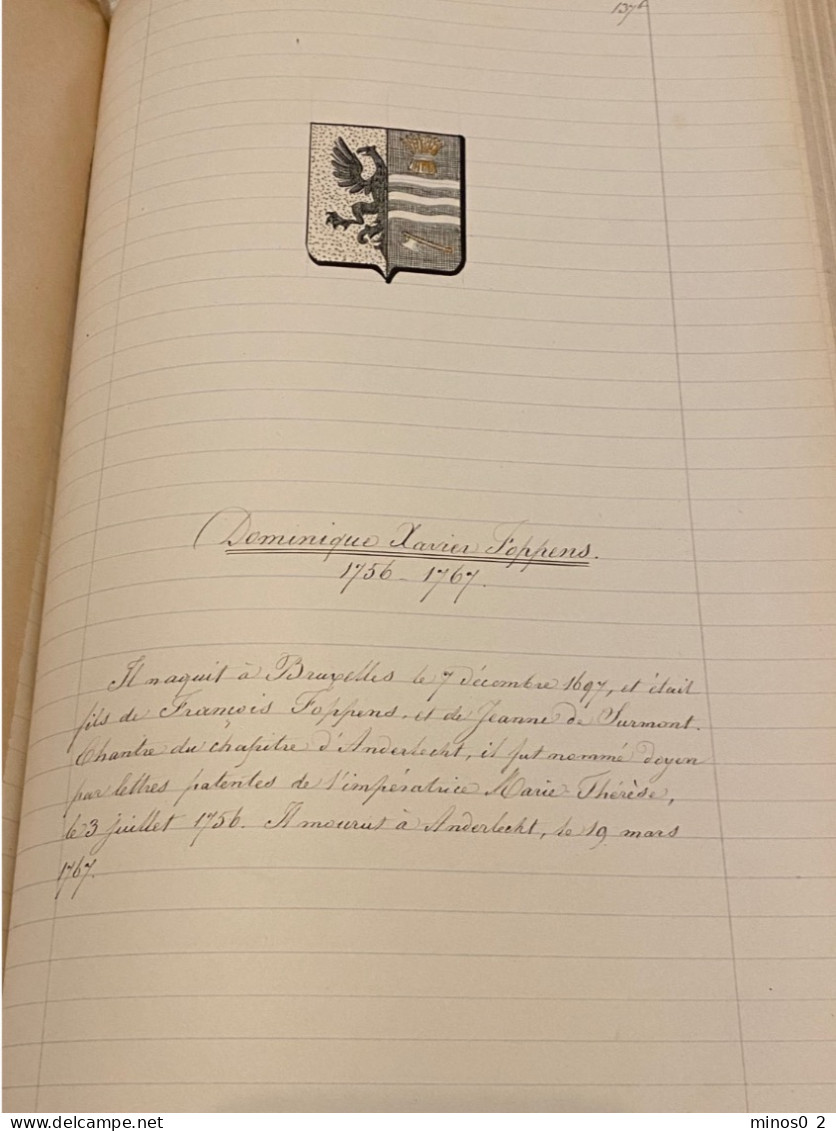 137
Dominique Xavier Foppens.
1756 - 1767.
Il naquit à Bruxelles le 7 décembre 1697, et était
fils de François Foppens, et de Jeanne de Surmont.
Chantre du chapitre d'Anderlecht, il fut nommé doyen
par lettres patentes de l'impératrice Marie-Thérèse,
le 3 juillet 1756. Il mourut à Anderlecht, le 19 mars
1767.
delcampe.net
minos0_2